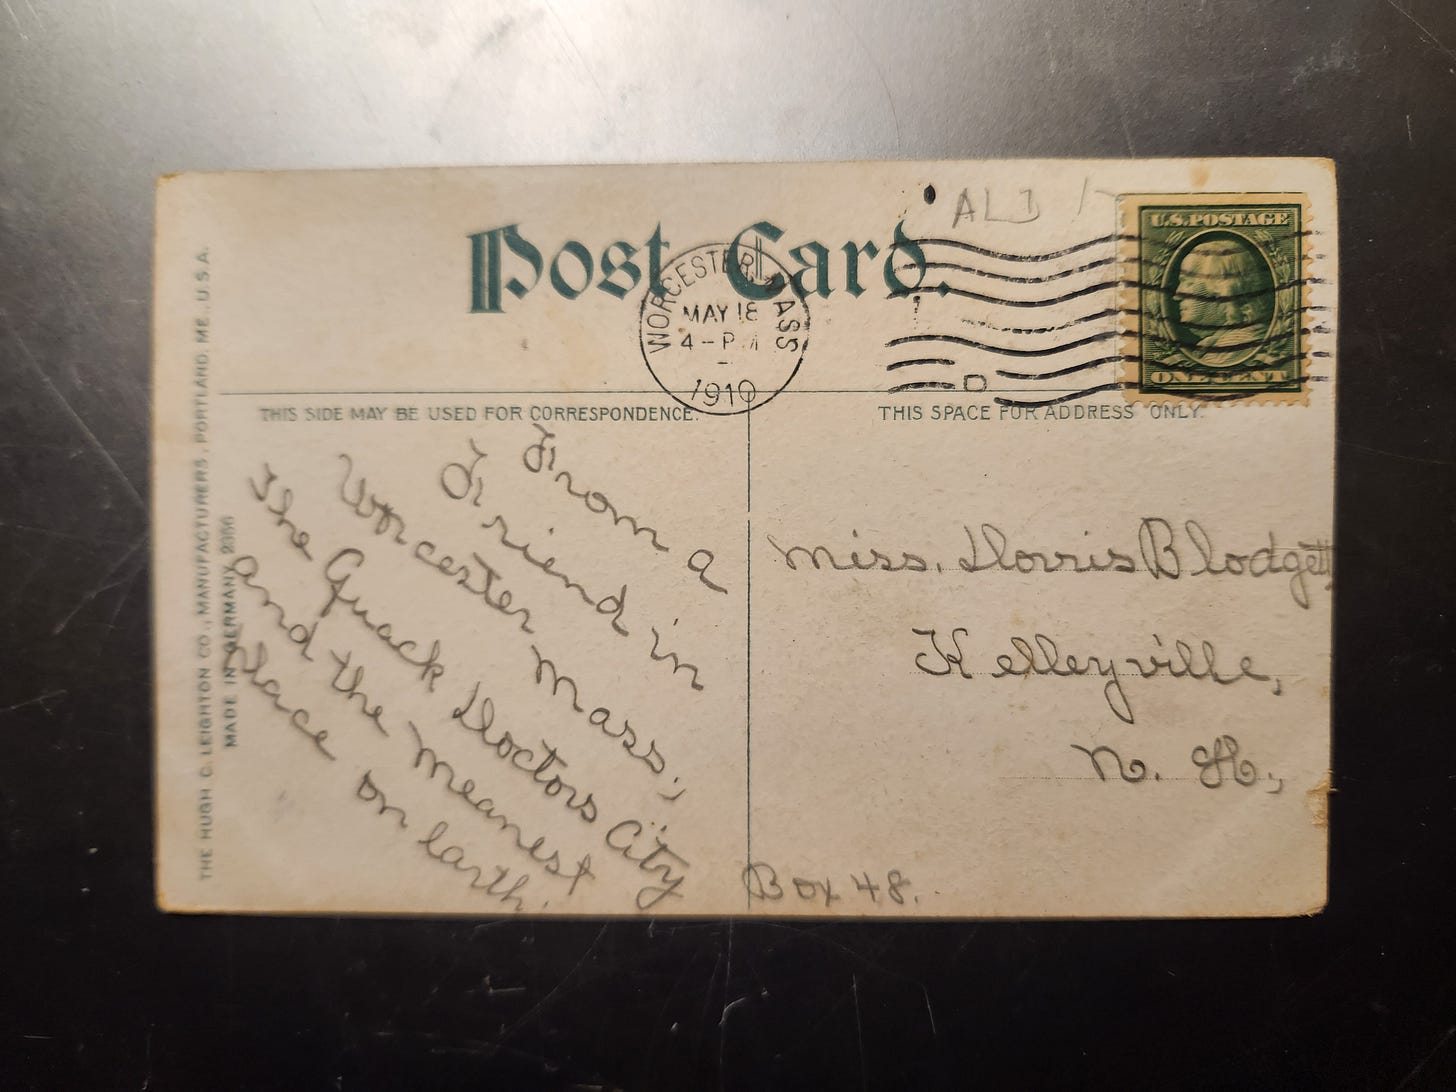 Post Card.
WORCESTER, MASS
MAY 18
4 - P M
1910
U.S. POSTAGE
ONE CENT
D
THIS SIDE MAY BE USED FOR CORRESPONDENCE.
THIS SPACE FOR ADDRESS ONLY.
From a
Friend in
Worcester Mass.,
The Quack Doctors City
and the meanest
place on Earth.
Miss. Dorris Blodgett
Kelleyville,
N. H.,
Box 48.
THE HUGH C. LEIGHTON CO., MANUFACTURERS, PORTLAND, ME., U.S.A.
MADE IN GERMANY 2356